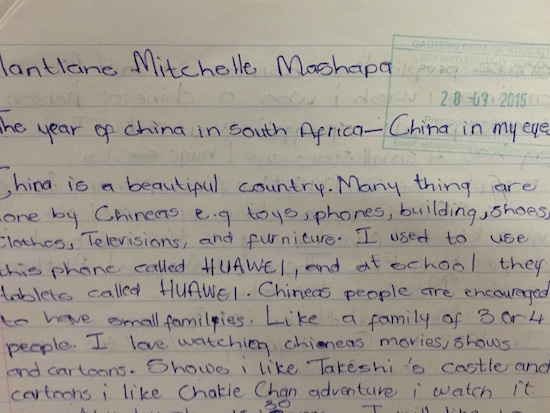 lantlane Mitchelle Mashapa
28 -07- 2015
The year of china in south Africa- China in my eye
China is a beautiful country. Many thing are
one by Chineas e.g toys, phones, building, shoes,
clothes, Televisions, and furnicure. I used to use
this phone called HUAWEI, and at school they
tablets called HUAWEI. Chineas people are encouraged
to have small familpies. Like a family of 3 or 4
people. I love watching chieneas movies, shows
and cartoons. Shows i like Takeshi's castle and
cartoons i like Chakie Chan adventure i watch it